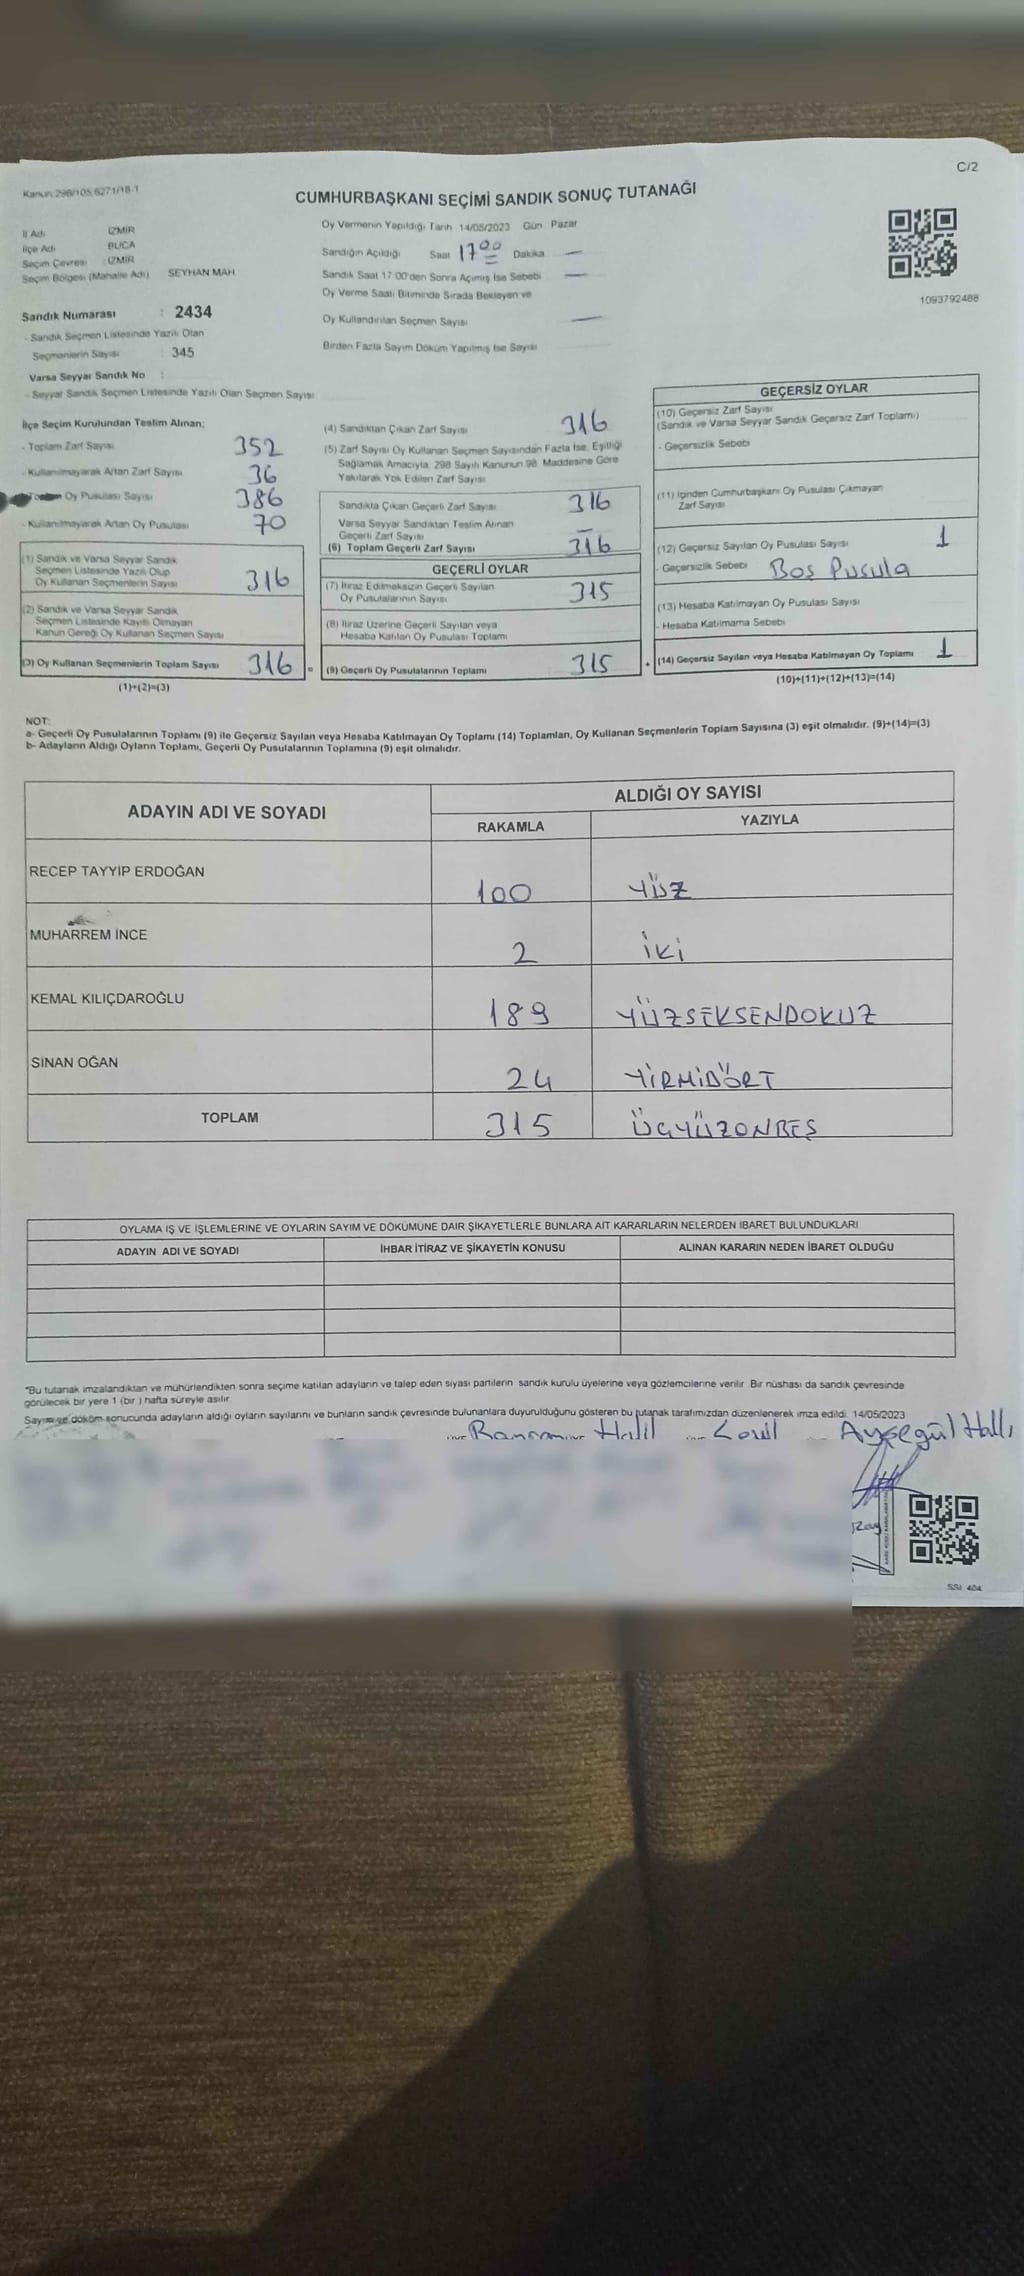 C/2
Kanun:298/105,6271/18-1
CUMHURBAŞKANI SEÇİMİ SANDIK SONUÇ TUTANAĞI
İl Adı : İZMİR
İlçe Adı : BUCA
Seçim Çevresi : İZMİR
Seçim Bölgesi (Mahalle Adı) : SEYHAN MAH.
Sandık Numarası : 2434
- Sandık Seçmen Listesinde Yazılı Olan
Seçmenlerin Sayısı : 345
Varsa Seyyar Sandık No :
- Seyyar Sandık Seçmen Listesinde Yazılı Olan Seçmen Sayısı :
Oy Vermenin Yapıldığı Tarih 14/05/2023 Gün : Pazar
Sandığın Açıldığı Saat 17 00 Dakika —
Sandık Saat 17:00'den Sonra Açımış İse Sebebi —
Oy Verme Saati Bitiminde Sırada Bekleyen ve
Oy Kullandırılan Seçmen Sayısı —
Birden Fazla Sayım Döküm Yapılmış İse Sayısı
1093792488
İlçe Seçim Kurulundan Teslim Alınan;
- Toplam Zarf Sayısı 352
- Kullanılmayarak Artan Zarf Sayısı 36
- Toplam Oy Pusulası Sayısı 386
- Kullanılmayarak Artan Oy Pusulası 70
(1) Sandık ve Varsa Seyyar Sandık
Seçmen Listesinde Yazılı Olup
Oy Kullanan Seçmenlerin Sayısı 316
(2) Sandık ve Varsa Seyyar Sandık
Seçmen Listesinde Kayıtlı Olmayan
Kanun Gereği Oy Kullanan Seçmen Sayısı
(3) Oy Kullanan Seçmenlerin Toplam Sayısı 316 =
(1)+(2)=(3)
(4) Sandıktan Çıkan Zarf Sayısı 316
(5) Zarf Sayısı Oy Kullanan Seçmen Sayısından Fazla İse, Eşitliği
Sağlamak Amacıyla, 298 Sayılı Kanunun 98. Maddesine Göre
Yakılarak Yok Edilen Zarf Sayısı
Sandıkta Çıkan Geçerli Zarf Sayısı 316
Varsa Seyyar Sandıktan Teslim Alınan
Geçerli Zarf Sayısı —
(6) Toplam Geçerli Zarf Sayısı 316
GEÇERLİ OYLAR
(7) İtiraz Edilmeksizin Geçerli Sayılan
Oy Pusulalarının Sayısı 315
(8) İtiraz Üzerine Geçerli Sayılan veya
Hesaba Katılan Oy Pusulası Toplamı
(9) Geçerli Oy Pusulalarının Toplamı 315 +
GEÇERSİZ OYLAR
(10) Geçersiz Zarf Sayısı
(Sandık ve Varsa Seyyar Sandık Geçersiz Zarf Toplamı)
- Geçersizlik Sebebi
(11) İçinden Cumhurbaşkanı Oy Pusulası Çıkmayan
Zarf Sayısı
(12) Geçersiz Sayılan Oy Pusulası Sayısı 1
- Geçersizlik Sebebi Boş Pusula
(13) Hesaba Katılmayan Oy Pusulası Sayısı
- Hesaba Katılmama Sebebi
(14) Geçersiz Sayılan veya Hesaba Katılmayan Oy Toplamı 1
(10)+(11)+(12)+(13)=(14)
NOT:
a- Geçerli Oy Pusulalarının Toplamı (9) ile Geçersiz Sayılan veya Hesaba Katılmayan Oy Toplamı (14) Toplamları, Oy Kullanan Seçmenlerin Toplam Sayısına (3) eşit olmalıdır. (9)+(14)=(3)
b- Adayların Aldığı Oyların Toplamı, Geçerli Oy Pusulalarının Toplamına (9) eşit olmalıdır.
ADAYIN ADI VE SOYADI ALDIĞI OY SAYISI
RAKAMLA YAZIYLA
RECEP TAYYİP ERDOĞAN 100 YÜZ
MUHARREM İNCE 2 İKİ
KEMAL KILIÇDAROĞLU 189 YÜZSEKSENDOKUZ
SİNAN OĞAN 24 YİRMİDÖRT
TOPLAM 315 ÜÇYÜZONBEŞ
OYLAMA İŞ VE İŞLEMLERİNE VE OYLARIN SAYIM VE DÖKÜMÜNE DAİR ŞİKAYETLERLE BUNLARA AİT KARARLARIN NELERDEN İBARET BULUNDUKLARI
ADAYIN ADI VE SOYADI İHBAR İTİRAZ VE ŞİKAYETİN KONUSU ALINAN KARARIN NEDEN İBARET OLDUĞU
"Bu tutanak imzalandıktan ve mühürlendikten sonra seçime katılan adayların ve talep eden siyasi partilerin sandık kurulu üyelerine veya gözlemcilerine verilir. Bir nüshası da sandık çevresinde
görülecek bir yere 1 (bir ) hafta süreyle asılır.
Sayım ve döküm sonucunda adayların aldığı oyların sayılarını ve bunların sandık çevresinde bulunanlara duyurulduğunu gösteren bu tutanak tarafımızdan düzenlenerek imza edildi. 14/05/2023
Halil Ayşegül Hallı
SSI: 404